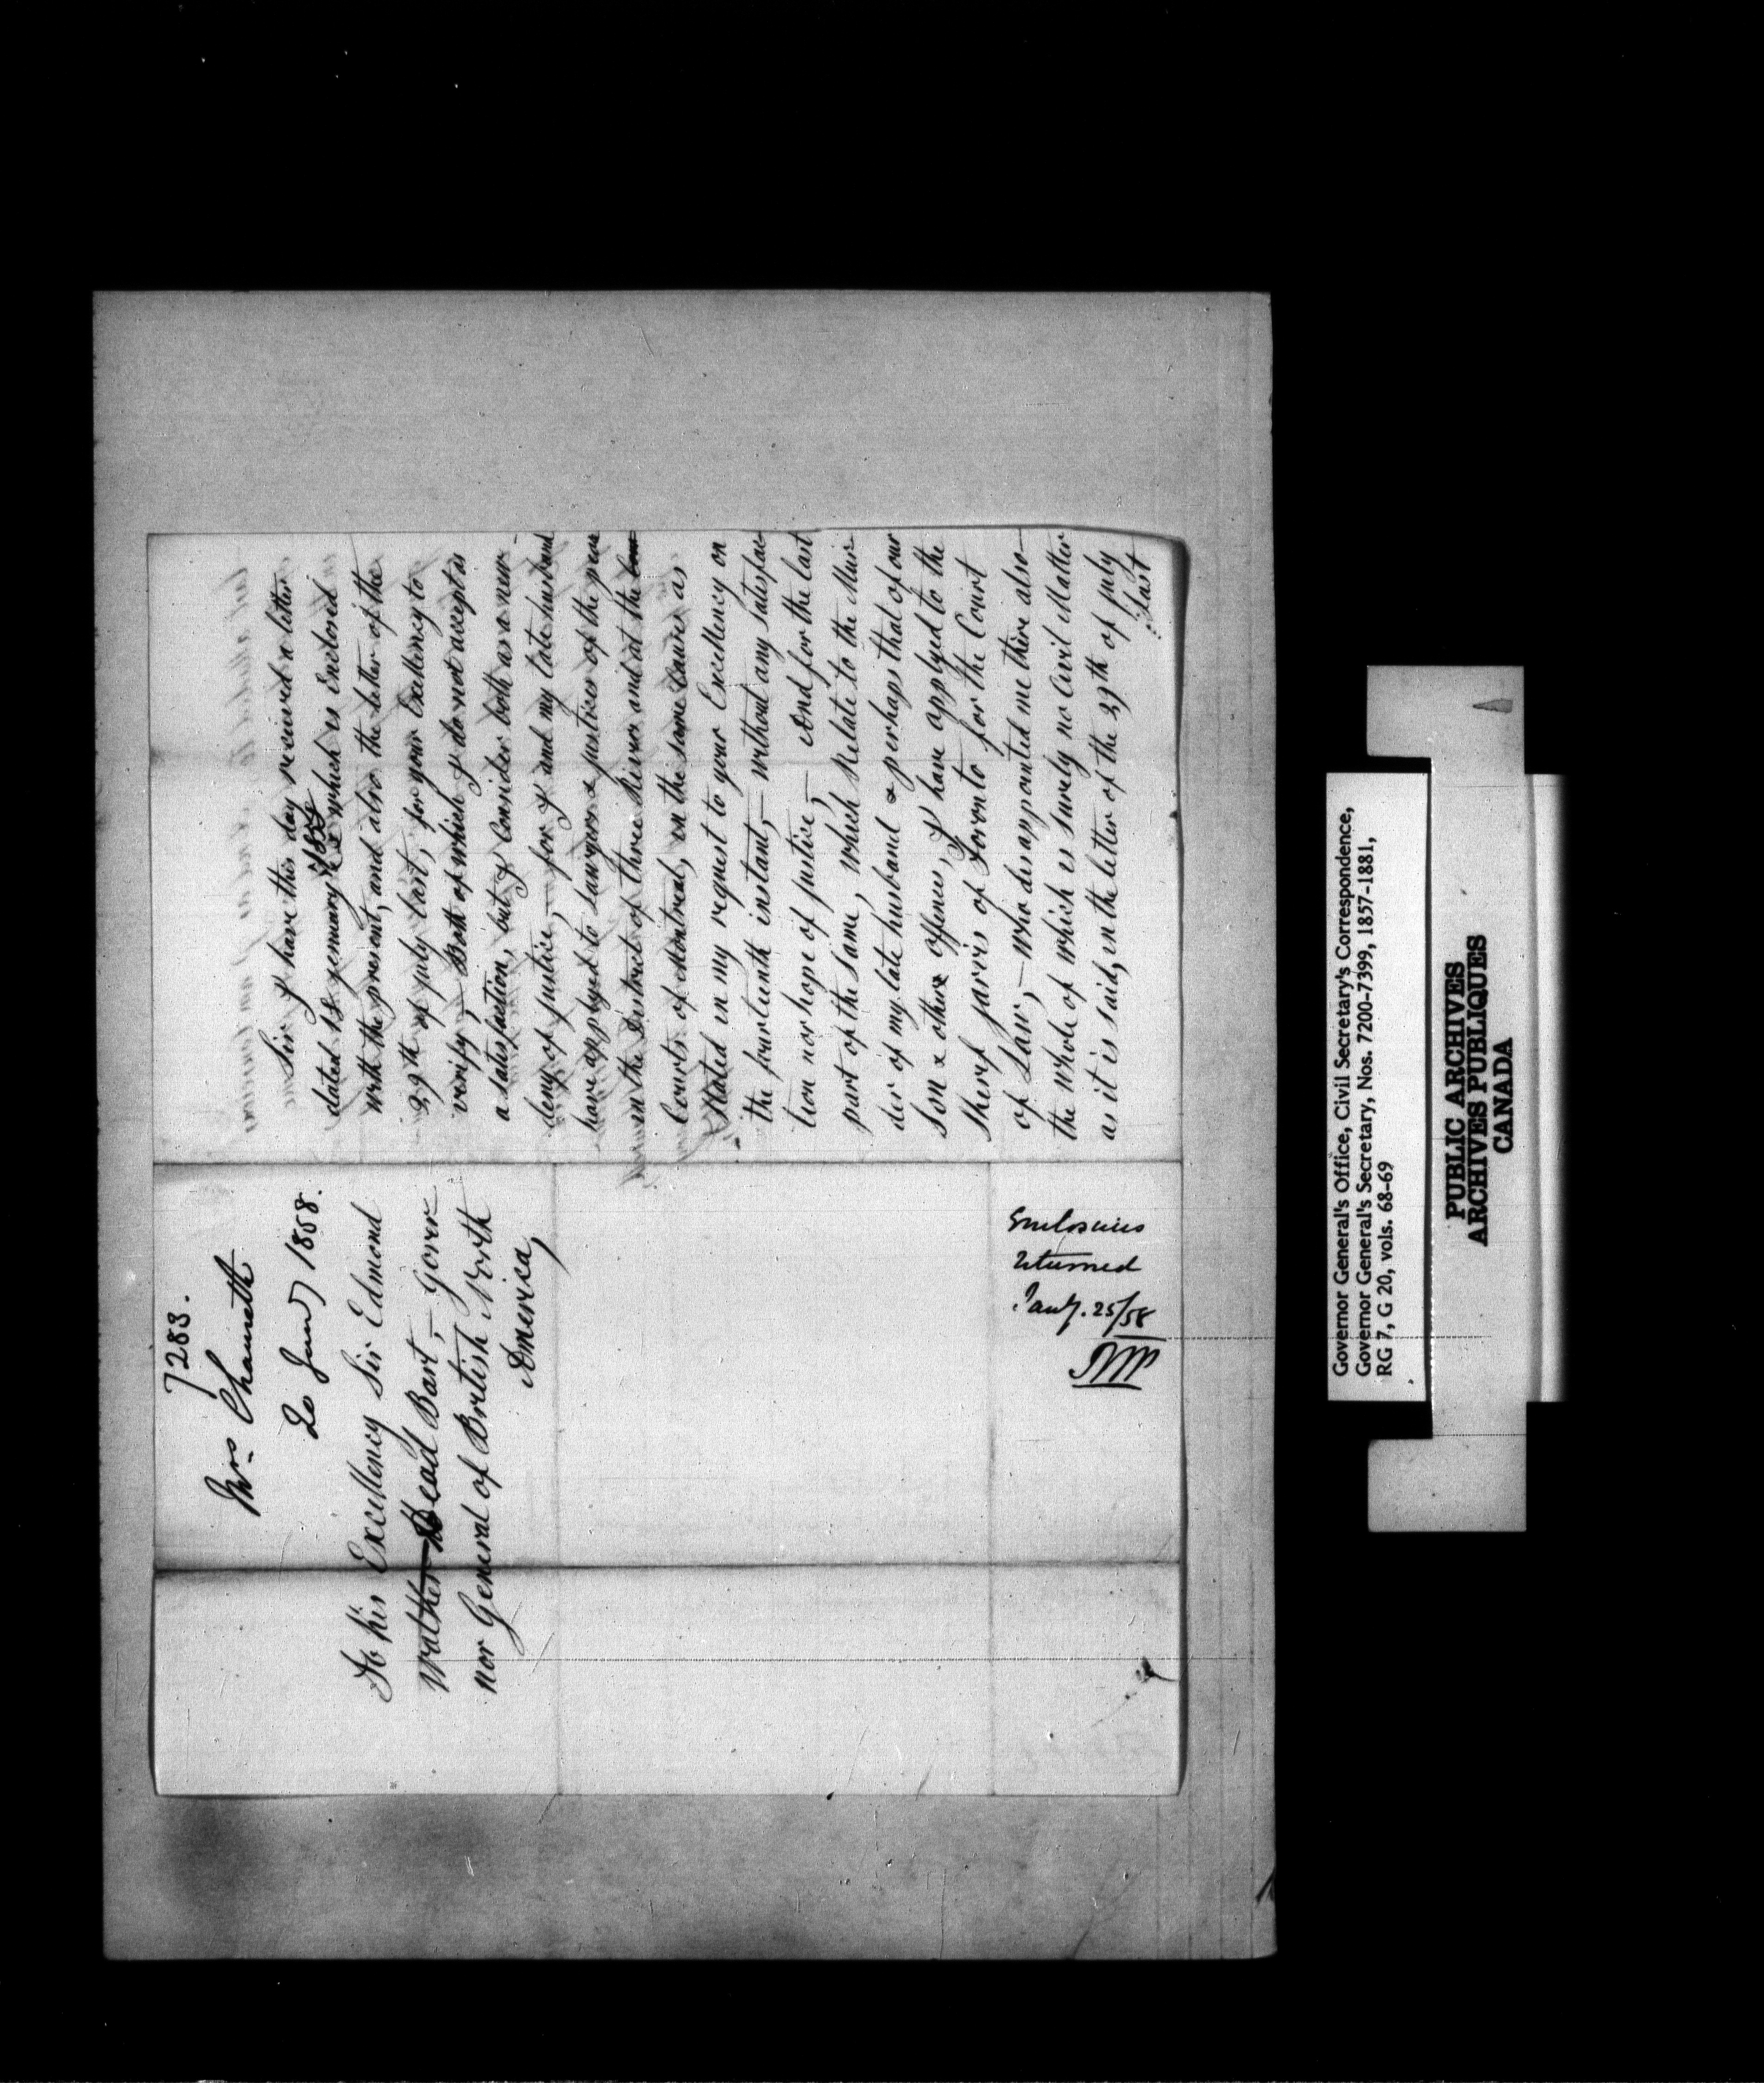 7283.
Mrs. Chaureth
20 Jany 1858.
To his Excellency Sir Edmond
Walther Head Bart, – Gover
nor General of British North
America,
Enclosures
returned
Jany. 25/58
Sir I have this day received a letter
dated 18 jenuary 1858 which is Enclosed
with the present, and also the letter of the
29th of july last, for your Excellency to
verify, – Both of which I do not accept as
a satisfaction, but I Consider both as a new –
deny of justice, – for I and my late husband
have applyed to Lawyers & justices of the peace
in the District of three Rivers and at the
Courts of Montreal, in the same Causes as
Stated in my request to your Excellency on
the fourteenth instant, – without any satisfac-
tion nor hope of justice, – And for the last
part of the same, which Relate to the Mur-
der of my late husband & perhaps that of our
son & others offences, I have applyed to the
Sherif jarvis of Toronto for the Court
of Law, – who disappointed me there also –
the whole of which is surely no Civil Matter
as it is said, in the letter of the 29th of july
last
Governor General's Office, Civil Secretary's Correspondence,
Governor General's Secretary, Nos. 7200-7399, 1857-1881,
RG 7, G 20, vols. 68-69
PUBLIC ARCHIVES
ARCHIVES PUBLIQUES
CANADA